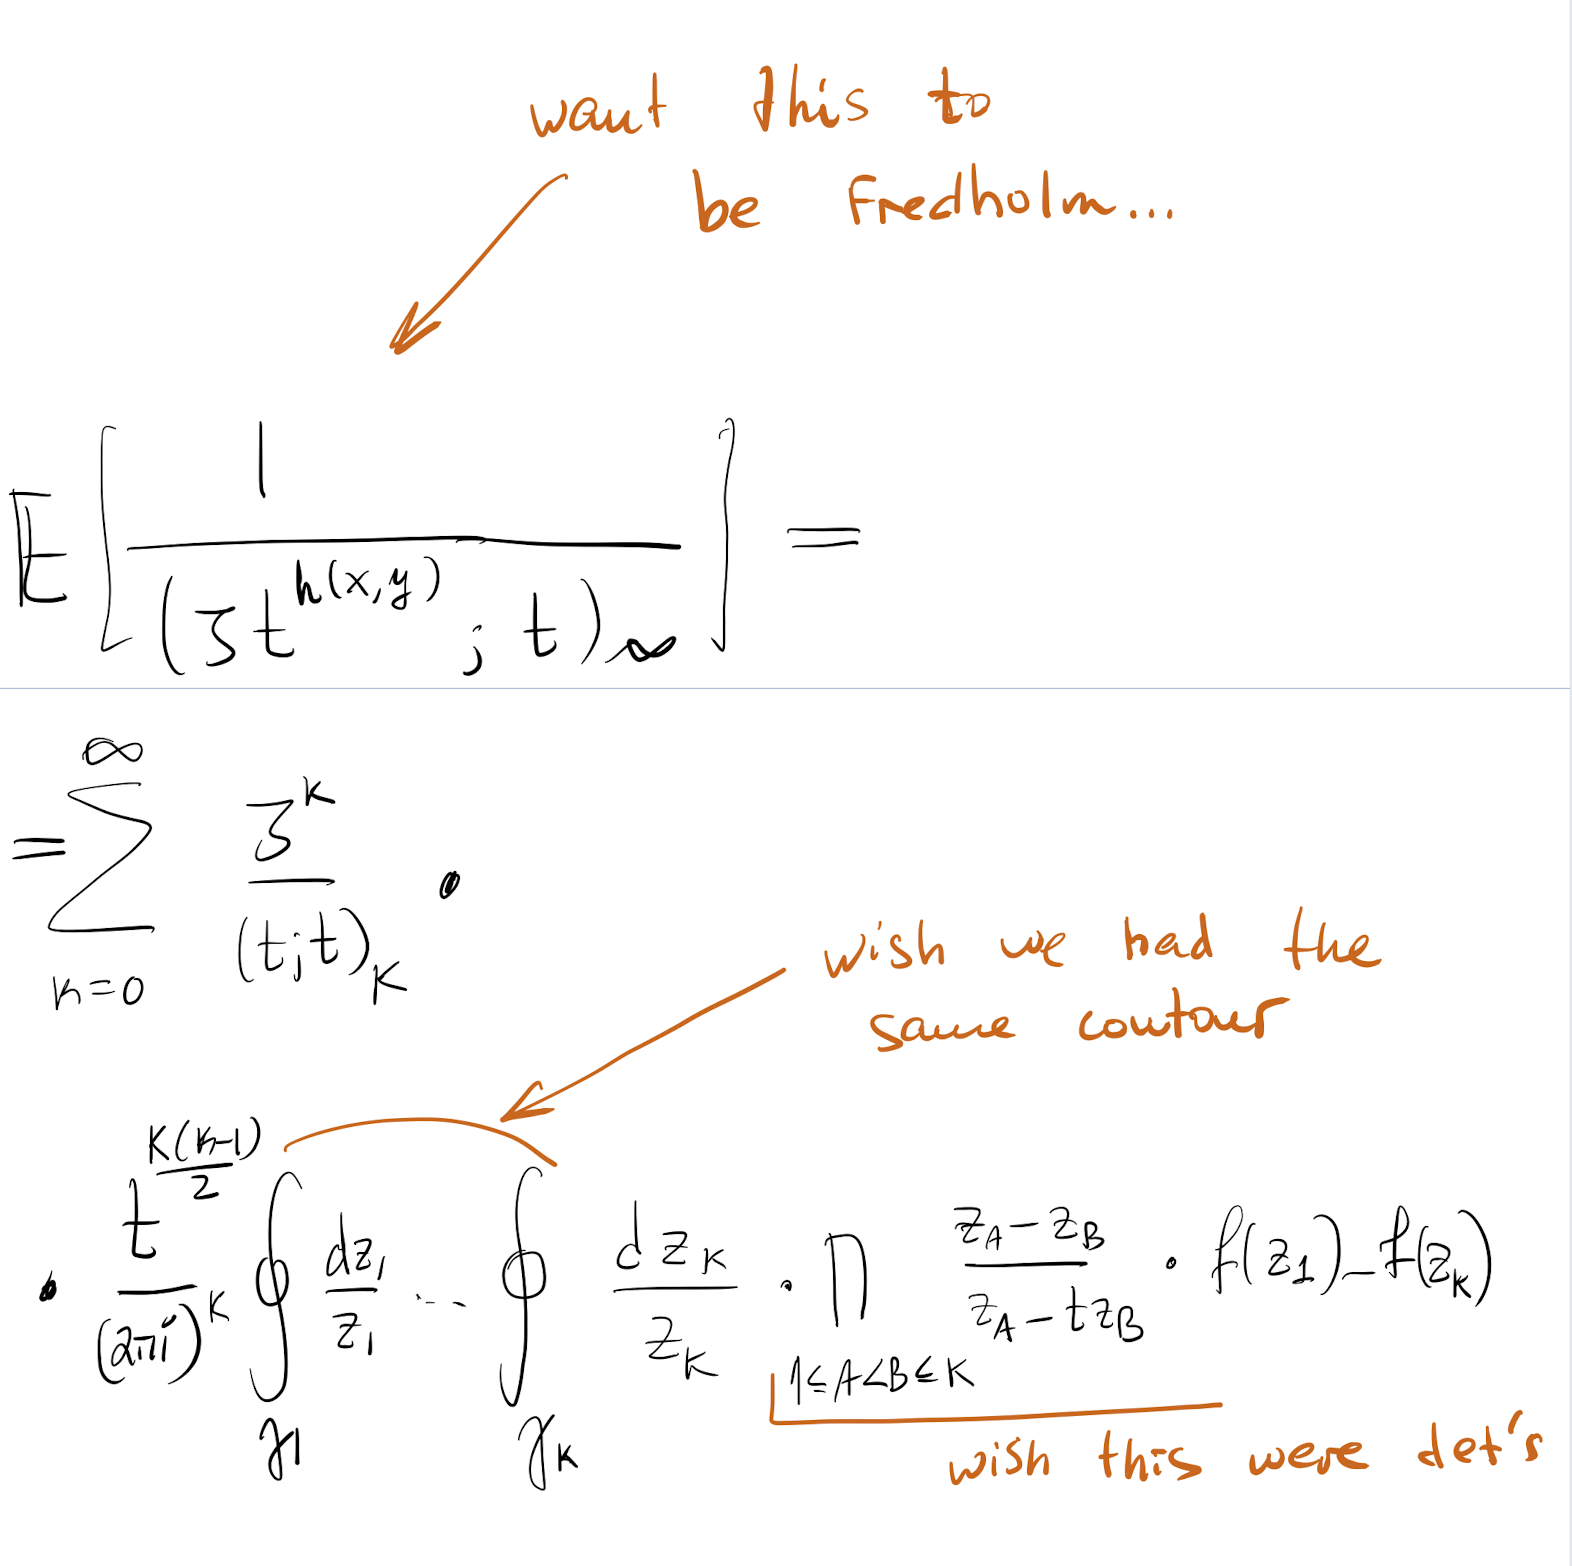 want this to
be Fredholm...
E [ 1 / (ζ t^{h(x,y)} ; t)_∞ ] =
= ∑_{k=0}^{∞} ζ^k / (t;t)_k ·
wish we had the
same contour
· t^{k(k-1)/2} / (2πi)^k ∮_{γ_1} dz_1/z_1 ... ∮_{γ_k} dz_k/z_k · ∏_{1≤A<B≤k} (z_A - z_B)/(z_A - t z_B) · f(z_1)...f(z_k)
wish this were det's